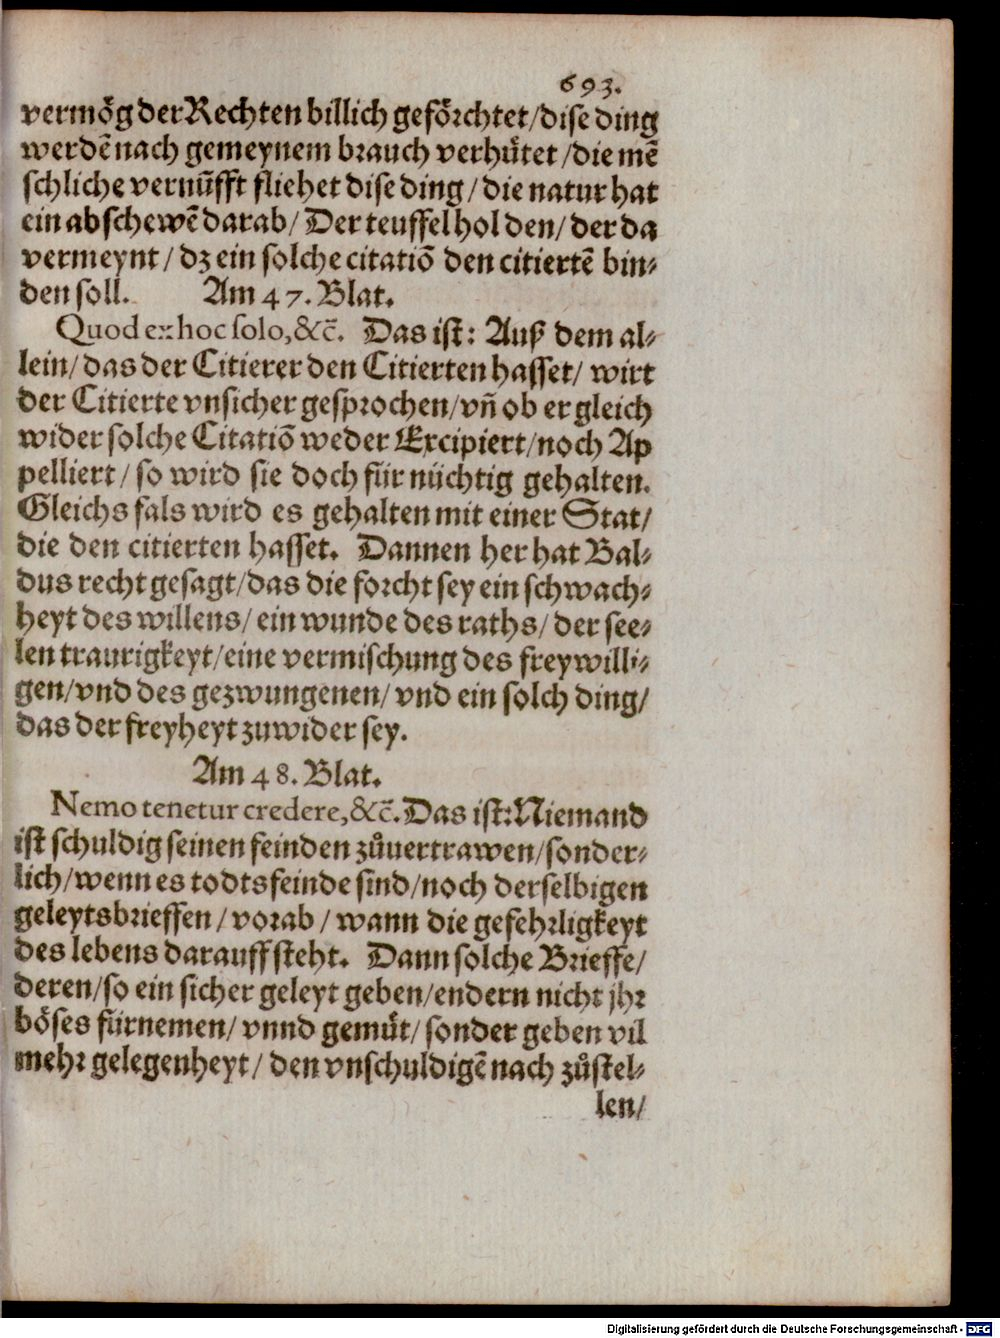 693.
vermög der Rechten billich geförchtet/dise ding
werdē nach gemeynem brauch verhůtet/die mē
schliche vernūfft fliehet dise ding/die natur hat
ein abschewē darab/Der teuffel hol den/der da
vermeynt/dz ein solche citatiō den citiertē bin-
den soll. Am 47. Blat.
Quod ex hoc solo,&c̄. Das ist: Auß dem al-
lein/das der Citierer den Citierten hasset/wirt
der Citierte vnsicher gesprochen/vñ ob er gleich
wider solche Citatiō weder Excipiert/noch Ap
pelliert/so wird sie doch für nüchtig gehalten.
Gleichs fals wird es gehalten mit einer Stat/
die den citierten hasset. Dannen her hat Bal-
dus recht gesagt/das die forcht sey ein schwach-
heyt des willens/ein wunde des raths/der see-
len traurigkeyt/eine vermischung des freywilli-
gen/vnd des gezwungenen/vnd ein solch ding/
das der freyheyt zuwider sey.
Am 48. Blat.
Nemo tenetur credere,&c̄. Das ist: Niemand
ist schuldig seinen feinden zůuertrawen/sonder-
lich/wenn es todtsfeinde sind/noch derselbigen
geleytsbrieffen/vorab/wann die gefehrligkeyt
des lebens darauff steht. Dann solche Brieffe/
deren/so ein sicher geleyt geben/endern nicht jhr
böses fürnemen/vnnd gemůt/sonder geben vil
mehr gelegenheyt/den vnschuldigē nach zůstel-
len/
Digitalisierung gefördert durch die Deutsche Forschungsgemeinschaft - DFG